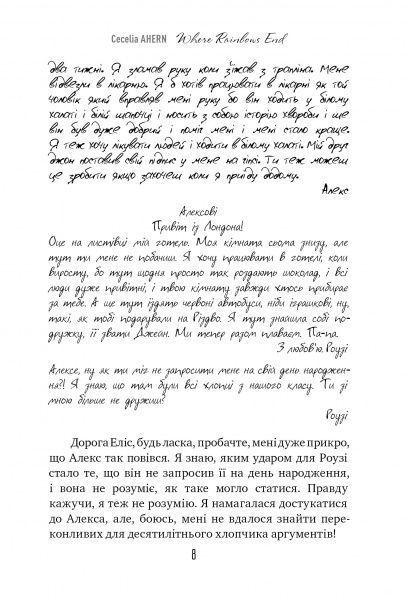 Cecelia AHERN Where Rainbows End
два тижні. Я зламав руку коли з'їжав з трапліна. Мене
відвезли в лікарню. Я б хотів працювати в лікарні як той
чоловік який вправляв мені руку бо він ходить у білому
халаті і білій шапочці і носить з собою історію хвороби і ще
він був дуже добрий і поміг мені і мені стало краще.
Я теж хочу лікувати людей і ходити в білому халаті. Мій друг
джон поставив свій підпис у мене на гіпсі. Ти теж можеш
це зробити якщо захочеш коли я приїду додому.
Алекс
Алексові
Привіт із Лондона!
Оце на листівці мій готель. Моя кімната сьома знизу, але
тут ти мене не побачиш. Я хочу працювати в готелі, коли
виросту, бо тут щодня просто так роздають шоколад, і всі
люди дуже привітні, і твою кімнату завжди хтось прибирає
за тебе. А ще тут їздять червоні автобуси, ніби іграшкові, ну,
такі, як тобі подарували на Різдво. Я тут знайшла собі по-
дружку, її звати Джейн. Ми тепер разом плаваєм. Па-па.
З любов'ю, Роузі
Алексе, ну як ти міг не запросити мене на свій день народжен-
ня?! Я знаю, що там були всі хлопці з нашого класу. Ти зі
мною більше не дружиш?
Роузі
Дорога Еліс, будь ласка, пробачте, мені дуже прикро,
що Алекс так повівся. Я знаю, яким ударом для Роузі
стало те, що він не запросив її на день народження,
і вона не розуміє, як таке могло статися. Правду
кажучи, я теж не розумію. Я намагалася достукатися
до Алекса, але, боюсь, мені не вдалося знайти пере-
конливих для десятилітнього хлопчика аргументів!
8